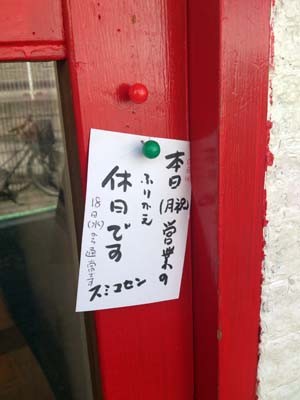 本日(月祝)営業の
ふりかえ
休日です
18日(水)から通常です
スミコセン